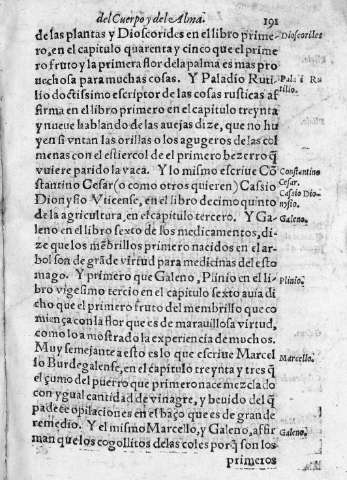 del Cuerpo y del Alma. 191
de las plantas y Dioscorides en el libro prime-
ro, en el capitulo quarenta y cinco que el prime
ro fruto y la primera flor de la palma es mas pro
uechosa para muchas cosas. Y Paladio Ruti-
lio doctissimo escriptor de las cosas rusticas af
firma en el libro primero en el capitulo treynta
y nueue hablando de las auejas dize, que no hu
yen si vntan las orillas o los agugeros de las col
menas con el estiercol de el primero bezerro q̃
vuiere parido la vaca. Y lo mismo escriue Cõ
stantino Cesar (o como otros quieren) Cassio
Dionysio Vticense, en el libro decimo quinto
de la agricultura, en el capitulo tercero. Y Ga-
leno en el libro sexto de los medicamentos, di-
ze que los mẽbrillos primero nacidos en el ar-
bol son de grãde virtud para medicinas del esto
mago. Y primero que Galeno, Plinio en el li-
bro vigesimo tercio en el capitulo sexto auia di
cho que el primero fruto del membrillo que co
miança con la flor que es de marauillosa virtud,
como lo a mostrado la experiencia de muchos.
Muy semejante a esto es lo que escriue Marcel
lo Burdegalense, en el capitulo treynta y tres q̃
el çumo del puerro que primero nace mezclado
con ygual cantidad de vinagre, y beuido del q̃
padece opilaciones en el baço que es de grande
remedio. Y el mismo Marcello, y Galeno, affir
man que los cogollitos de las coles porq̃ son los
primeros
Dioscorides
Paladi Ru
tilio.
Constantino
Cesar.
Cassio Dio-
nysio.
Galeno.
Plinio.
Marcello.
Galeno.